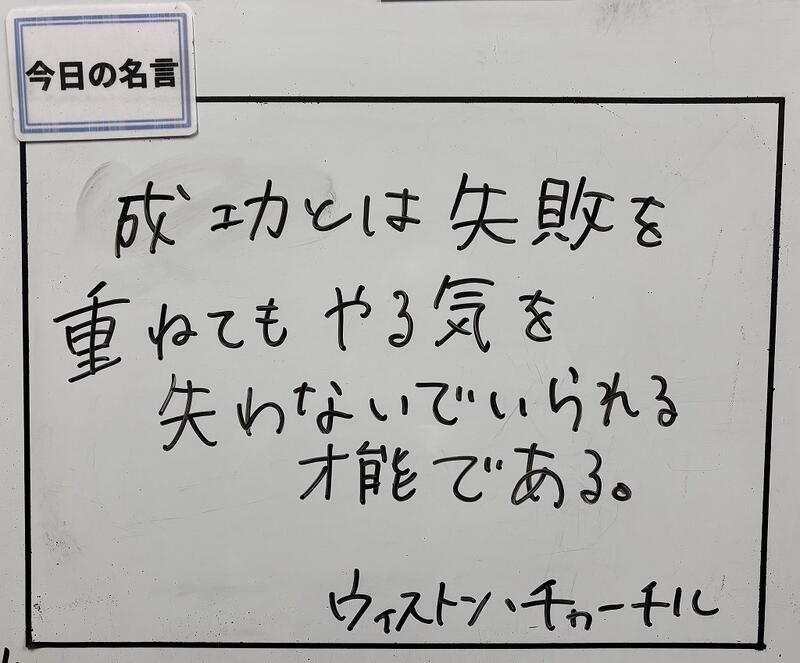 今日の名言
成功とは失敗を
重ねてもやる気を
失わないでいられる
才能である。
ウィストン・チャーチル